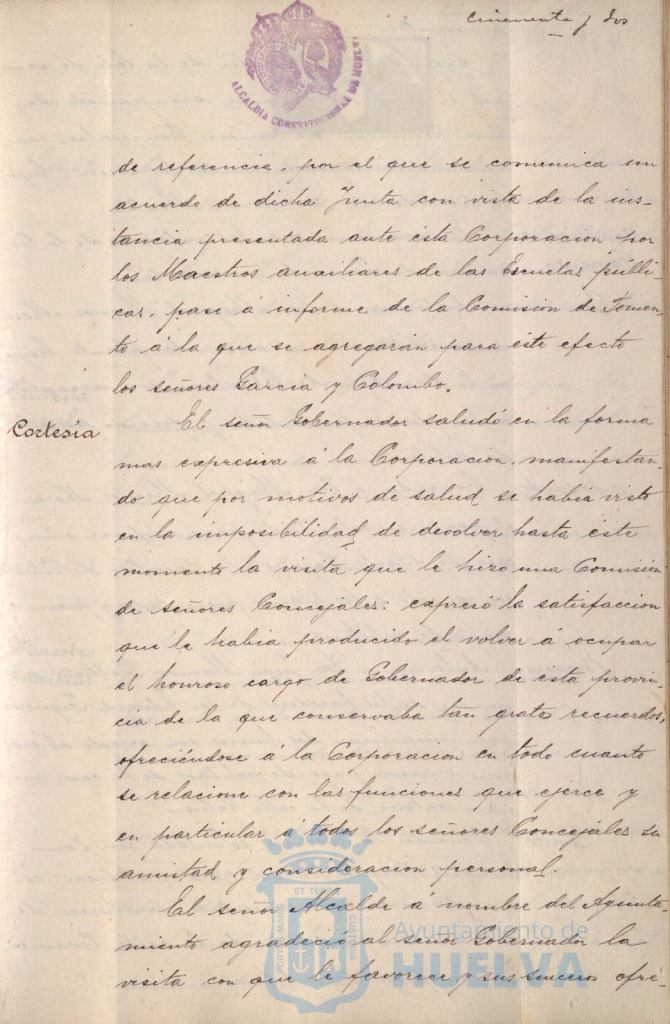 cincuenta y dos
ALCALDIA CONSTITUCIONAL DE HUELVA
de referencia, por el que se comunica un
acuerdo de dicha Junta con vista de la ins-
tancia presentada ante ésta Corporacion por
los Maestros auxiliares de las Escuelas públi-
cas, pase á informe de la Comision de Fomen-
to á la que se agregarán para éste efecto
los señores Garcia y Colombo.
Cortesía
El señor Gobernador saludó en la forma
mas expresiva á la Corporacion, manifestan-
do que por motivos de salud se habia visto
en la imposibilidad de devolver hasta éste
momento la visita que le hizo una Comision
de señores Concejales: expresó la satisfaccion
que le habia producido el volver á ocupar
el honroso cargo de Gobernador de ésta provin-
cia de la que conservaba tan gratos recuerdos,
ofreciéndose á la Corporacion en todo cuanto
se relacione con las funciones que ejerce y
en particular á todos los señores Concejales su
amistad y consideracion personal.
El señor Alcalde á nombre del Ayunta-
miento agradeció al señor Gobernador la
visita con que le favorece y sus sinceros ofre-
PORTUS MARIS ET TERRAE CUSTODIA
Ayuntamiento de
HUELVA